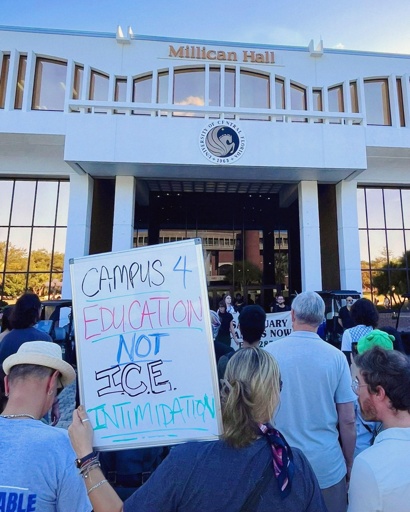 Millican Hall
UNIVERSITY OF CENTRAL FLORIDA
1963
CAMPUS 4
EDUCATION
NOT
I.C.E.
INTIMIDATION
UARY
S NOW
ABLE